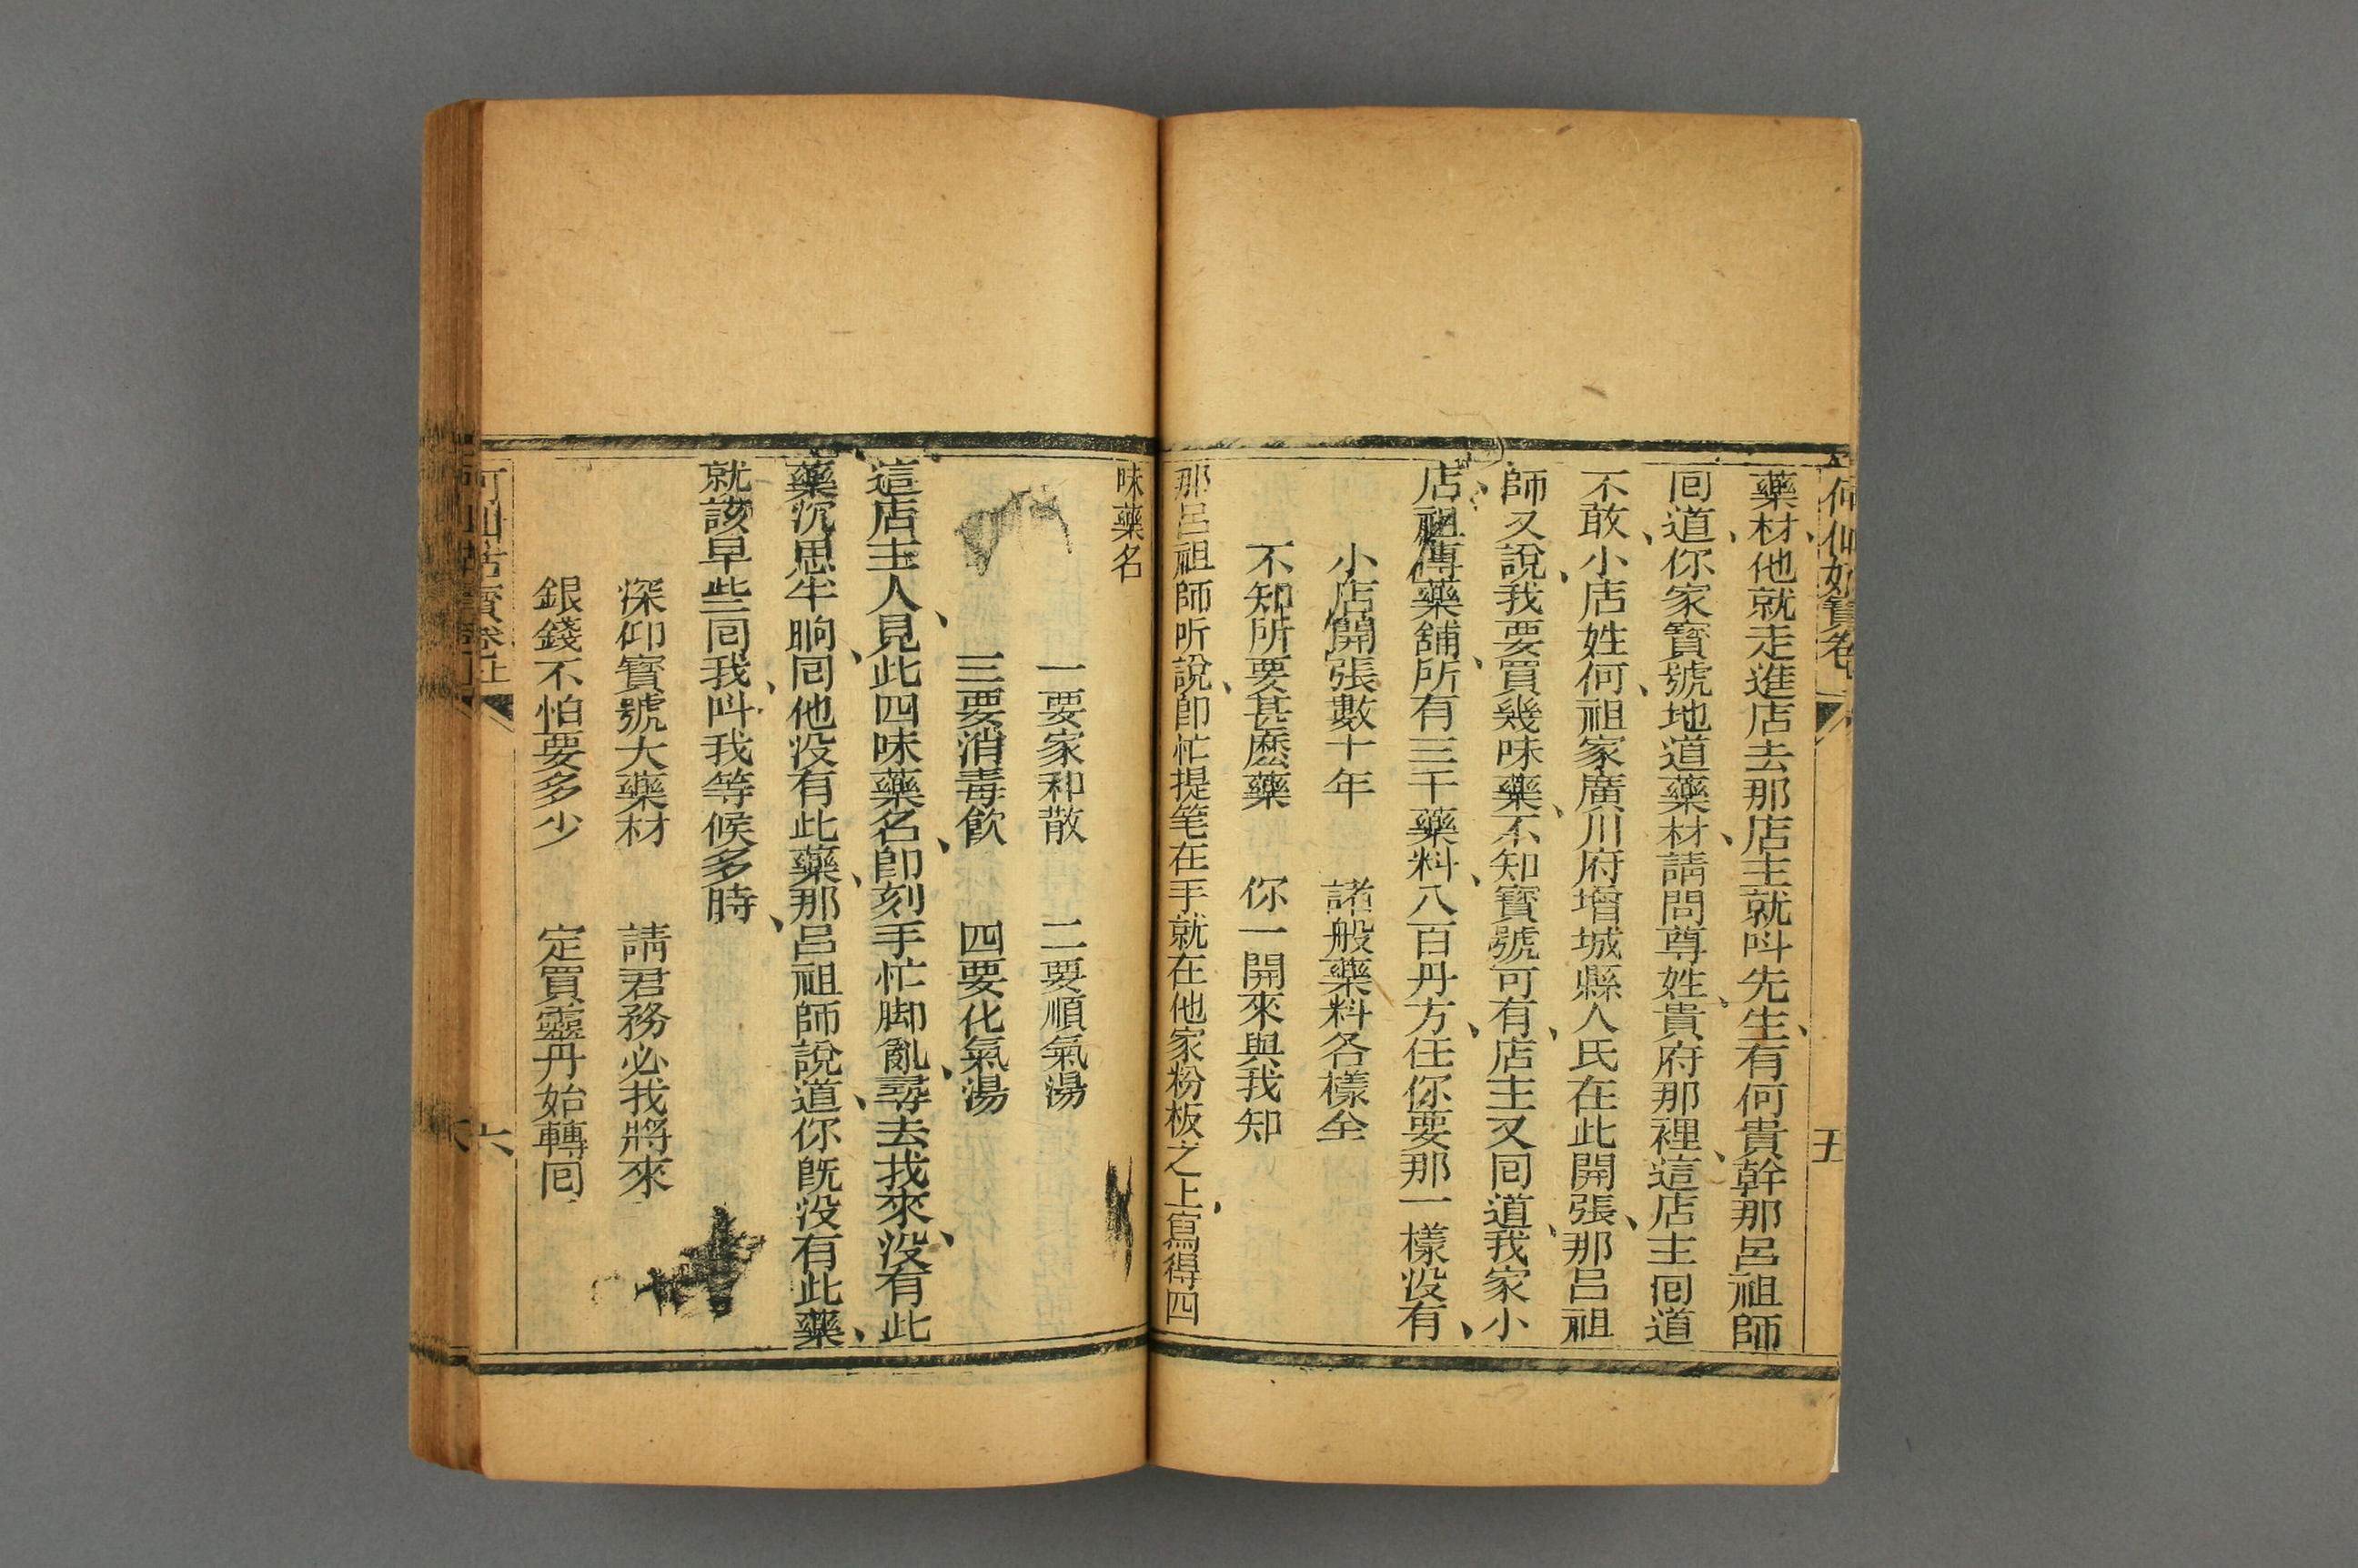 何仙姑寶卷
五
藥材、他就走進店去那店主就呌先生、有何貴幹那呂祖師
囘道、你家寳號地道藥材、請問尊姓、貴府那裡、這店主囘道
不敢、小店姓何、祖家廣川府增城縣人氏在此開張、那呂祖
師又說、我要買幾味藥、不知寳號可有、店主又囘道、我家小
店、祖傳藥舖、所有三千藥料、八百丹方、任你要那一樣没有、
小店開張數十年　諸般藥料各樣全
不知所要甚麽藥　你一開來與我知
那呂祖師听說、卽忙提笔在手就在他家粉板之上、寫得四
味藥名
一要家和散　二要順氣湯
三要消毒飲　四要化氣湯
這店主人、見此四味藥名、卽刻手忙脚亂、尋去找來、没有此
藥沉思半晌、囘他没有此藥、那呂祖師說道、你旣没有此藥、
就該早些囘我、呌我等候多時、
深仰寳號大藥材　請君務必我將來
銀錢不怕要多少　定買靈丹始轉囘
何仙姑寳卷上
六